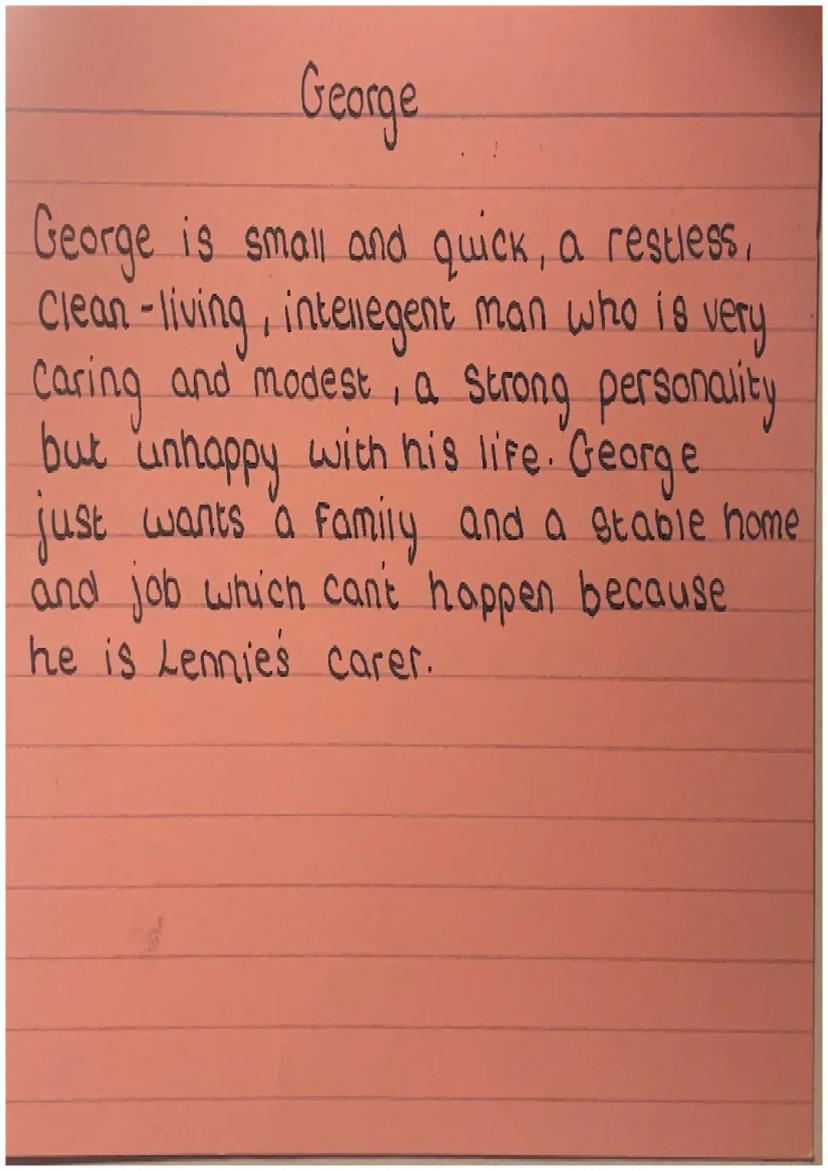 George
George is small and quick, a restless,
clean-living, intellegent man who is very
caring and modest, a strong personality
but unhappy with his life. George
just wants a family and a stable home
and job which can't happen because
he is Lennie's carer.